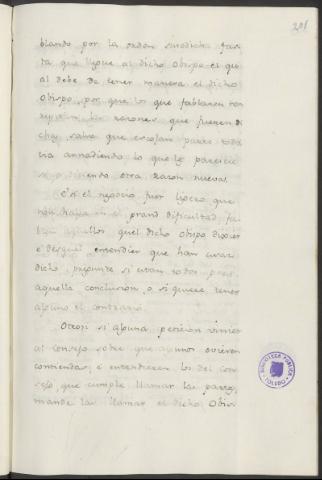 201
blando por la orden susodicha fas
ta que llegue al dicho Obispo el qu
al debe de tener manera el dicho
Obispo, por que los que fablaren non
repitan las razones que fueren di
chas, salvo que escojan parte toda
via annadiendo lo que le pareciere
o diciendo otra razon nueva.
E si el negocio fuer ligero que
non haya en el grand dificultad, fa
blen aquellos quel dicho Obispo dixiere
e desque entendier que han
dicho, pregunte si estan todos por
aquella conclusion, o si quiere tener
alguno el contrario.
Otrosi si alguna peticion viniere
al Consejo sobre que algunos ovieren
contiendas, e entendieren los del Con
sejo que cumple llamar las partes,
mande las llamar el dicho Obis
BIBLIOTECA PUBLICA
TOLEDO